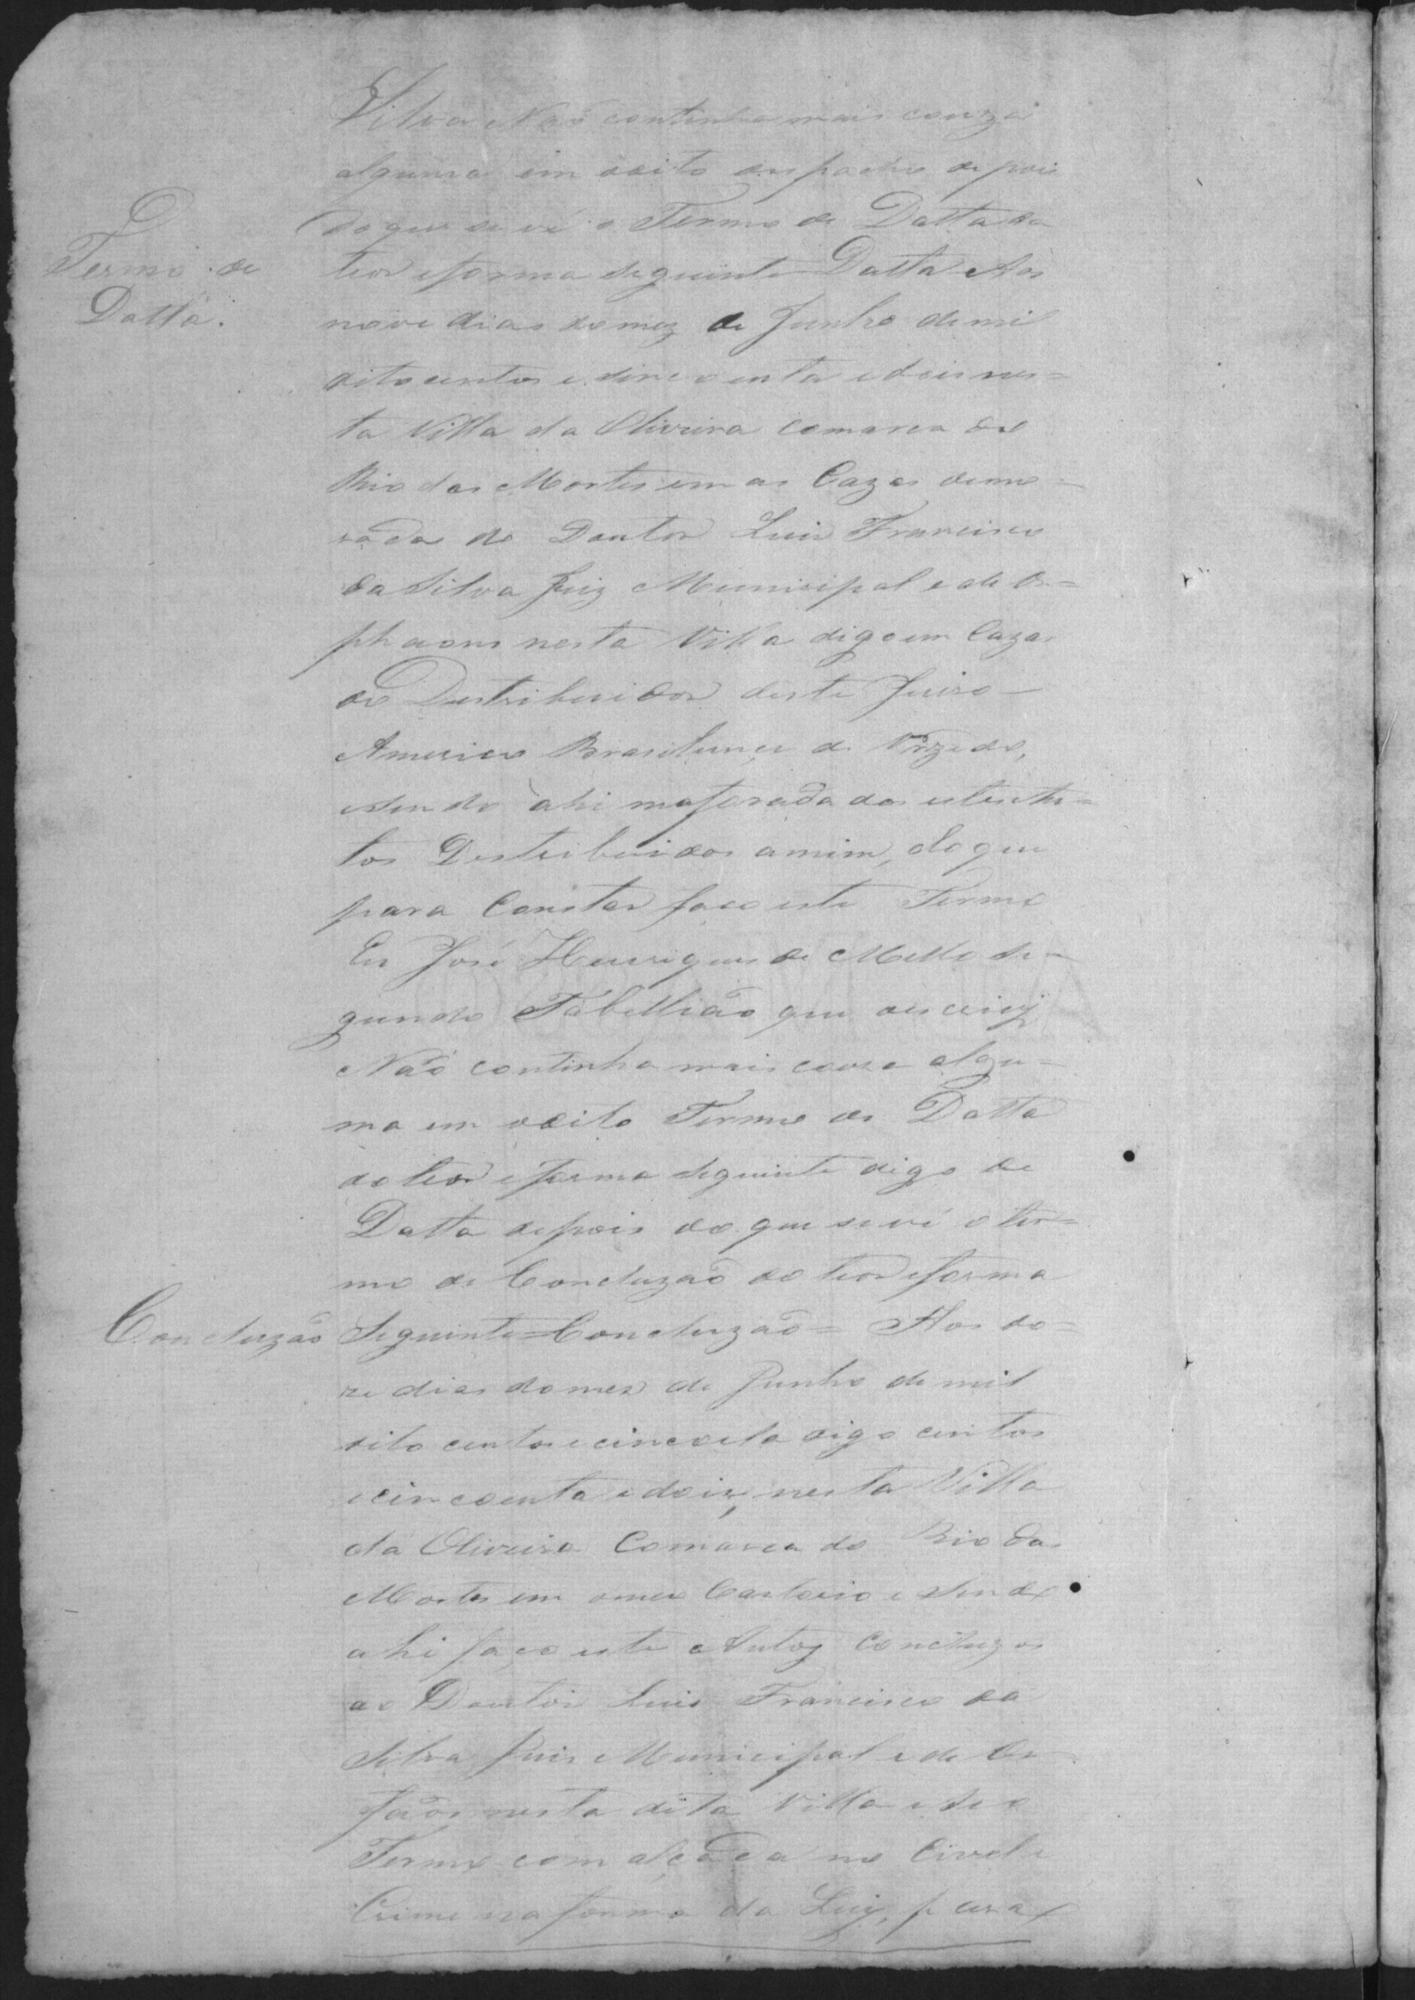 Silva Não continha mais couza
alguma em odito despacho depois
do que se vê o Termo de Datta do
Termo de
Datta.
teor eforma Seguinte Datta Aos
nove dias domez de Junho demil
oito centos e sincoenta edois nes=
ta Villa da Oliveira comarca do
Rio das Mortes em as Cazas demo=
rada do Doutor Luis Francisco
da Silva Juiz Municipal e de Or=
phaons nesta Villa digo em Cazas
do Destribuidor deste Juizo
Americo Brasiliense de
sendo ahi me forão dados estes Au=
tos Destribuidos amim, do que
para Constar faco este Termo
Eu José Henriques de Mello Se=
gundo Tabellião que oescrevi
Não continha mais couza algu=
ma em odito Termo de Datta
do teor eforma Seguinte digo de
Datta depois do que se vê o ter=
mo de Concluzão do teor eforma
Concluzão
Seguinte=Concluzão= Aos do=
ze dias domez de Junho de mil
oito centos ecincoeta digo centos
ecincoenta edois, nesta Villa
da Oliveira Comarca do Rio das
Mortes em omeu Cartorio e sendo
ahi faço este Autos Concluzos
ao Doutor Luis Francisco da
Silva Juis Municipal e de Or
fãos nesta dita Villa e Seo
Termo com alçada no Civel e
Crime na forma da Ley, para